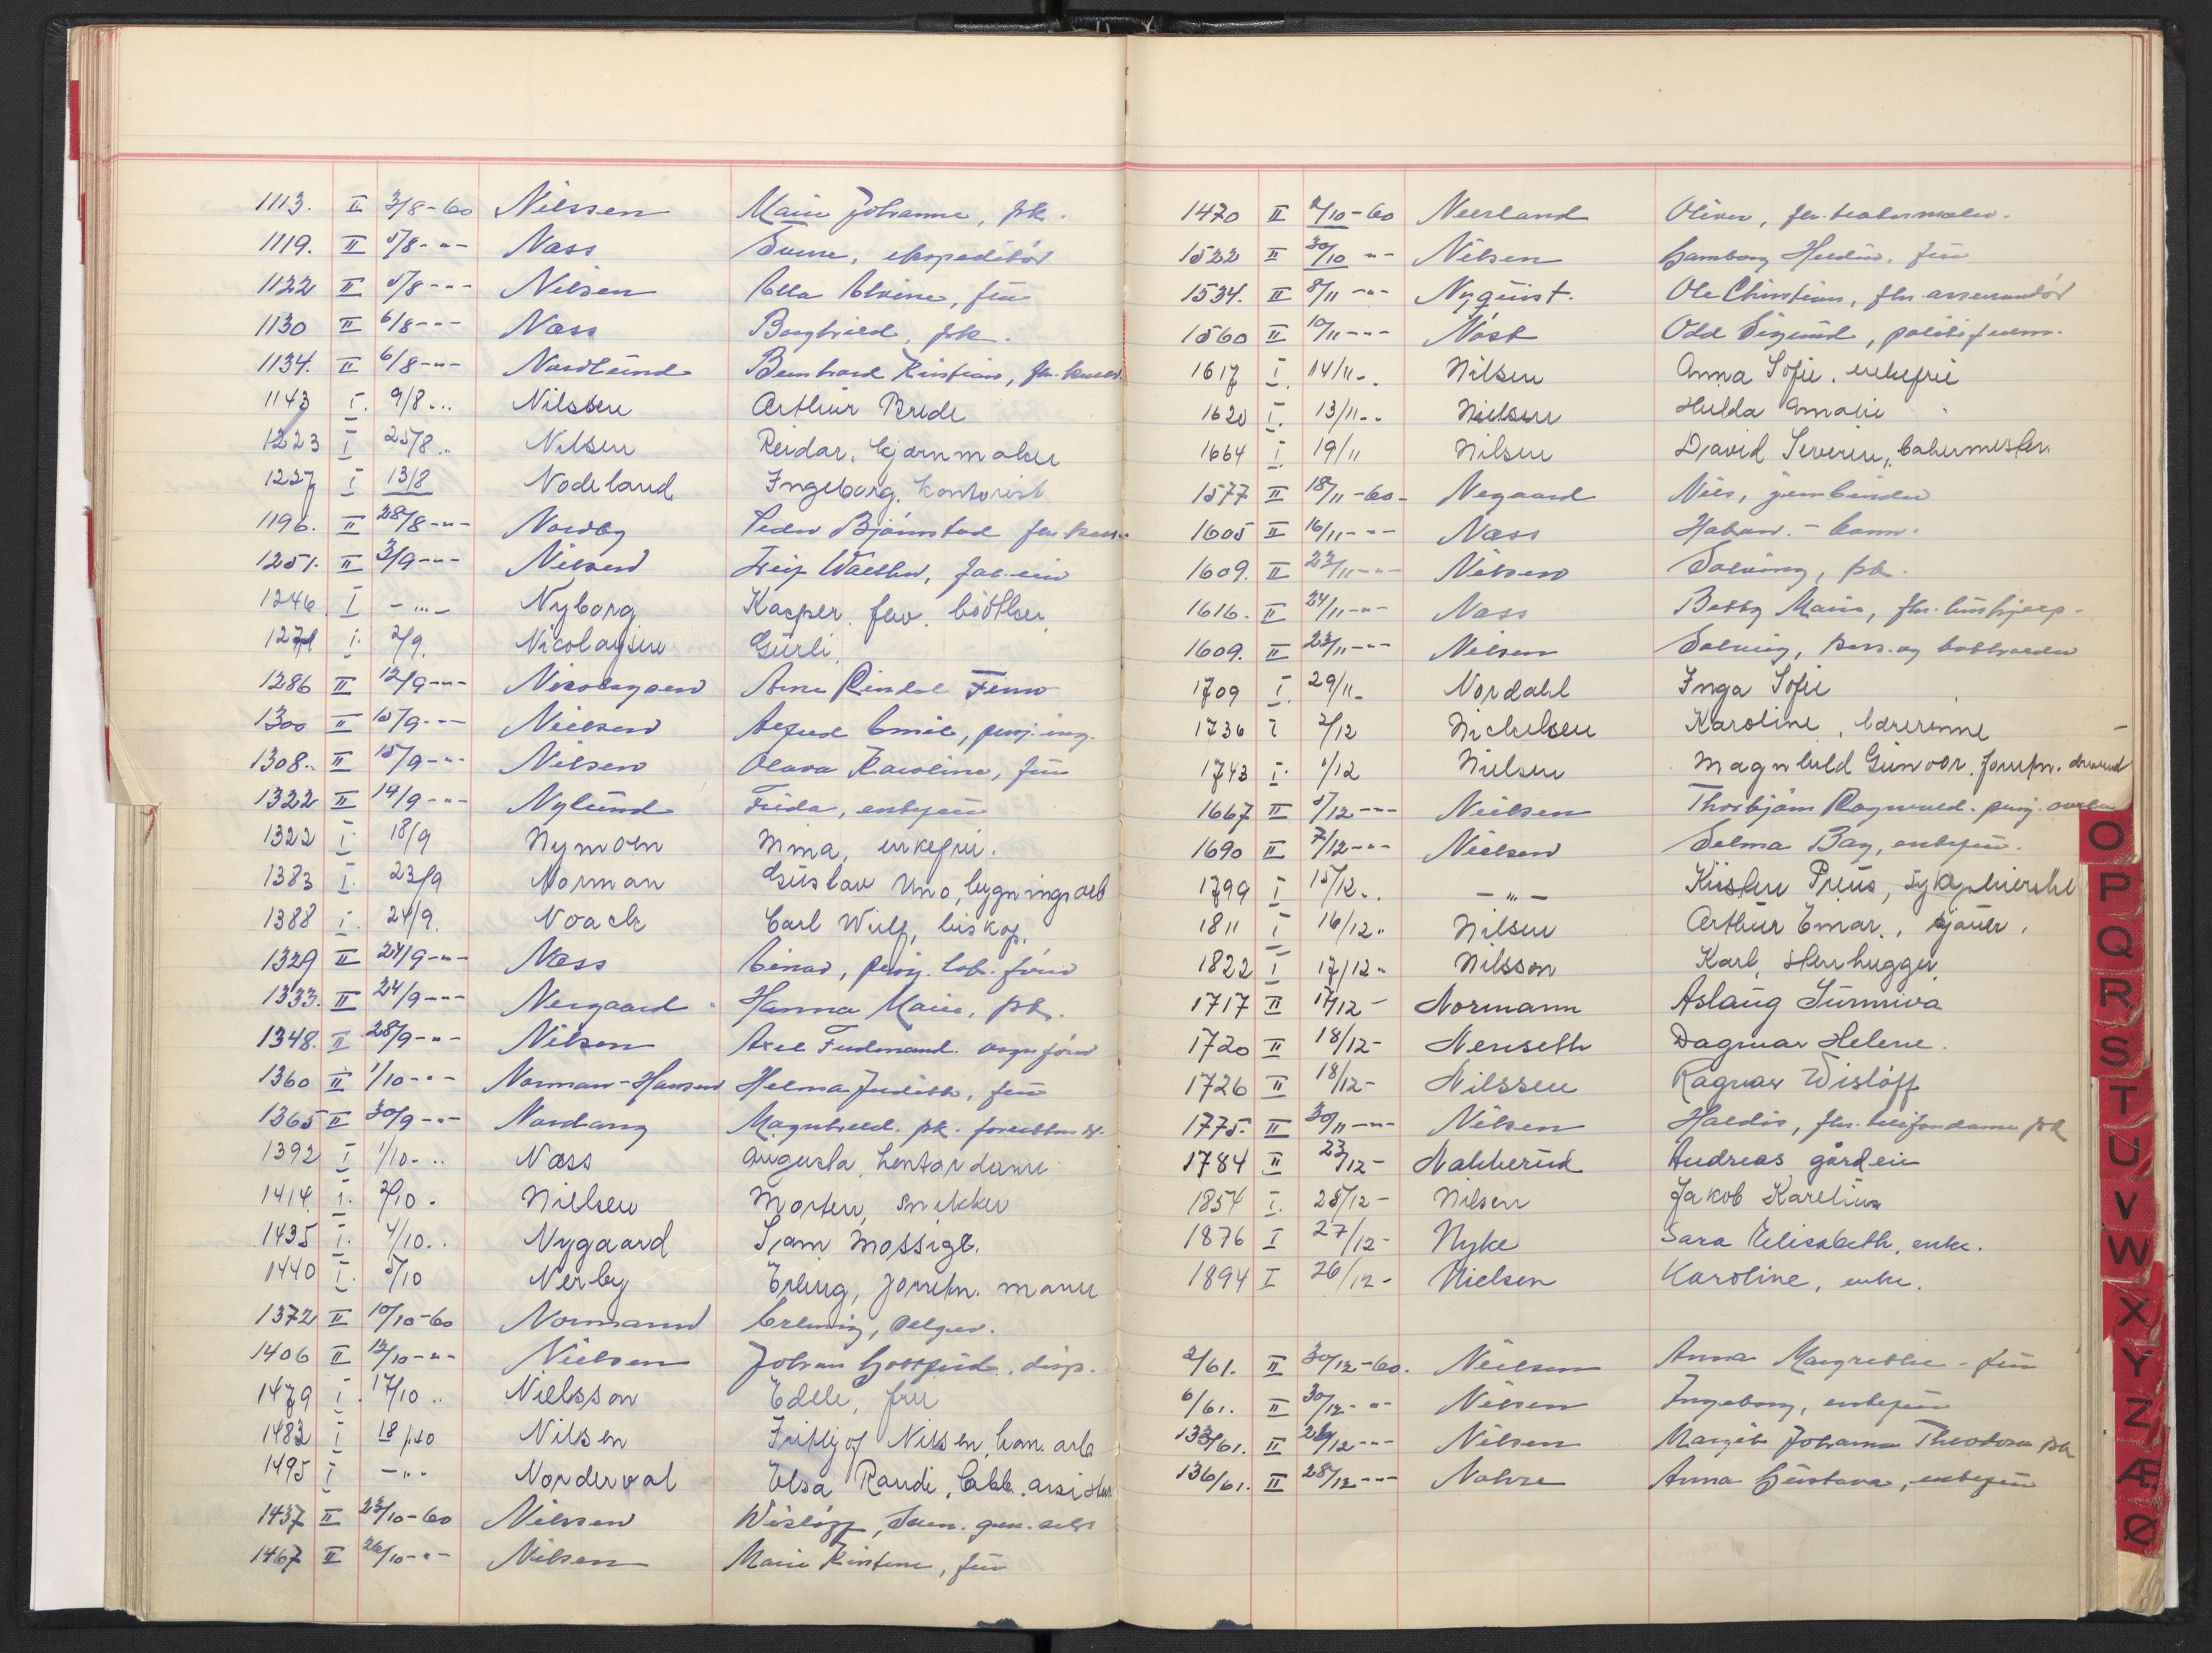 1113. II 3/8-60 Nilssen Marie Johanne, pk.
1119. II 5/8-"- Næss Sverre, ekspeditør
1122 II 5/8-"- Nilsen Alvine, frü
1130 II 6/8-"- Næss Borghild, psk.
1134. II 6/8-"- Nordlünd Bernhard Kristian, fhv.
1143 I. 9/8 ... Nilssen Arthür Brede
1223 I 25/8 .. Nilsen Reidar, gjørnmaker
1227 I 13/8 Nodeland Ingeborg, kontorist
1196. II 28/8-"- Nordby Peder Bjørnstad
1251. II 3/9-"- Nielsen Leif
1246 I -"- Nyborg Kasper. fhv. bödtker
127 I. 2/9. Nicolaysen Gürli
1286 II 12/9-"- Nicolaysen Arne Rindal
1300 II 15/9-"- Nielsen Alfred Emil, pensj. ing.
1308.. II 15/9-"- Nilsen Olava Karoline, frü
1322 II 14/9-"- Nylünd Frida, enkefrü
1322 I. 18/9 Nymoen Mina, enkefrü.
1383 I. 23/9 Norman Güstav Uno, bygningsarb
1388 I. 24/9. Noack Carl Wülf, biskop.
1329 II 24/9-"- Næss Einar, pensj.
1333. II 24/9-"- Nergaard Hanna Marie, psk.
1348. II 28/9-"- Nilsen Axel Ferdinand.
1360 II 1/10-"- Norman-Hansen Helma Judith, frü
1365 II 30/9-"- Nordang Magnhild. psk.
1392 I 1/10- .. Næss Augusta, kontordame
1414. I. 2/10. Nielsen Morten, snekker
1435 I. 4/10.. Nygaard Siam Mossige.
1440 I. 5/10 Nerby Erling, forretn. mann
1372 II 10/10-60 Normann Erling,
1406 II 12/10-"- Nielsen Johan Gottfried, disp.
1479 I. 17/10 .. Nielsson Edele, frü
1482 I 18/10 Nilsen Fritjof Nilsen, kom. arb
1495 I -".. Norderval Elsa Randi, labb. assistent
1437 II 23/10-60 Nilssen Wisløff,
1467 II 26/10-"- Nilsen Marie Kirstine, frü
1470 II /10-60 Neerland Oliver, fhv. teatermaler.
1522 II 30/10 -"- Nilsen Hedvig, frü
1534. II 8/11 -"- Nyqüist. Ole Christian, fhv. assurandør
1560 II 10/11-"- Nøst Odd Sigürd, politifullm.
1617 I. 14/11-. Nilsen Anna Sofie. enkefrü
1620 I. 13/11.. Nielsen Hulda Amalie "
1664 I. 19/11 Nilsen David Severin, bakermester.
1577 II 18/11-60- Negaard Nils, jernbinder
1605 II 16/11-"- Næss Håkon.
1609. II 23/11-"- Nilssen Solveig, psk.
1616. II 24/11-"- Næss Betsy Marie, fhv. hüshjelp.
1609. II 23/11-"- Nilsen Solveig, kass. og bokholder
1709 I. 29/11- Nordahl Inga Sofie
1736 I 2/12 Nickelsen Karoline, lærerinne
1743 I. 1/12 Nielsen Magnhild Günvor. forretn. drivend
1667 II 5/12-"- Nielsen Thorbjørn Ragnvald. pensj.
1690 II 7/12-"- Nielsen Selma Bay, enkefrü.
1799 I 15/12.. -"- Kirsten Preüs, sykepleierske
1811 I 16/12" Nilsen Arthür Emar., sjåfør.
1822 I 17/12" Nilsson Karl, stenhugger
1717 II 17/12- Normann Aslaüg Sünniva
1720 II 18/12- Nenseth Dagmar Helene.
1726 II 18/12- Nilssen Ragnar Wisløff
1775. II 30/11-"- Nilsen Haldis, fhv. telefondame psk
1784 II 23/12- Nakkerüd Andreas gårdeier
1854 I. 25/12- Nilsen Jakob Karelius
1876 I 27/12- Nyke Sara Elisabeth, enke.
1894 I 26/12- Nielsen Karoline, enke.
2/61. II 30/12-60. Nielsen Anna Margrethe - frü
6/61. II 30/12-"- Nilsen Ingeborg, enkefrü
133/61. II 28/12-"- Nilsen Margit Johanna Theodora psk
136/61. II 28/12-"- Nohre Anna Güstava, enkefrü
O
P
Q
R
S
T
U
V
W
X
Y
Z
Æ
Ø